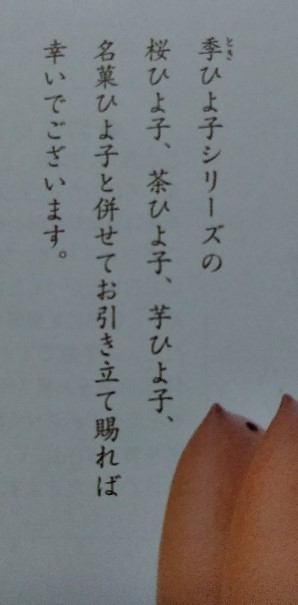 季ひよ子シリーズの
桜ひよ子、茶ひよ子、芋ひよ子、
名菓ひよ子と併せてお引き立て賜れば
幸いでございます。